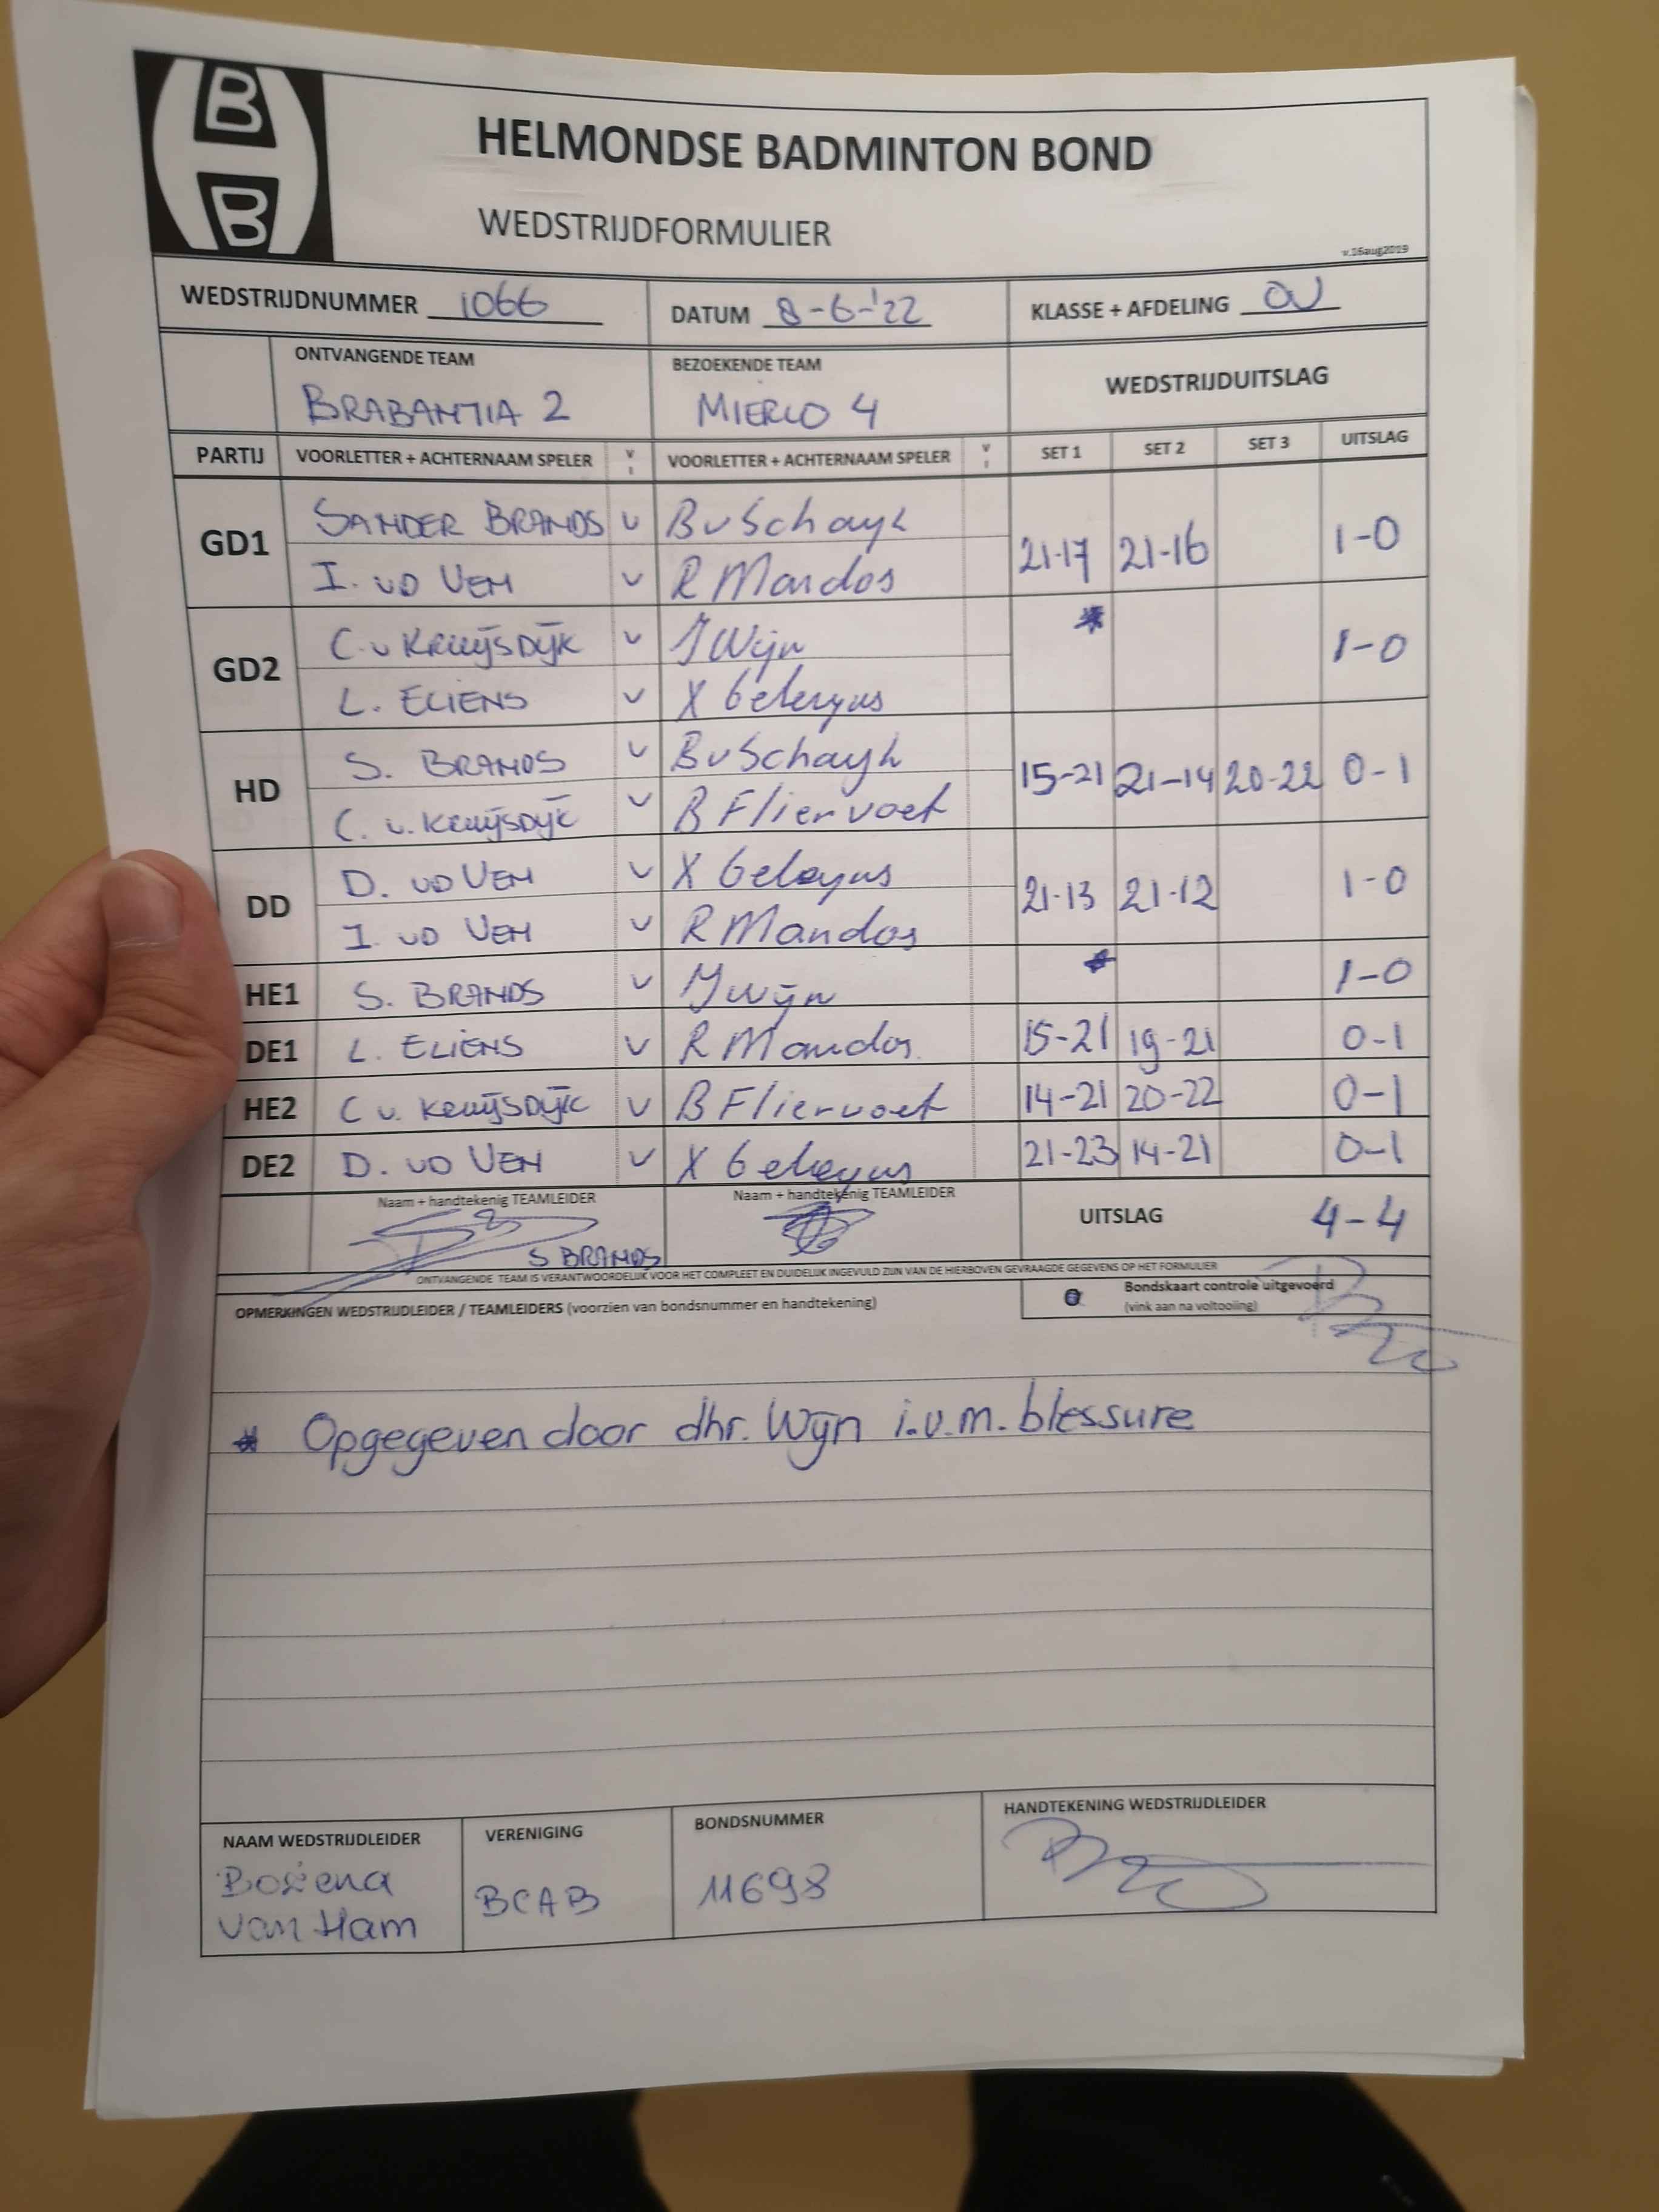 B
B
HELMONDSE BADMINTON BOND
WEDSTRIJDFORMULIER
v.16aug2019
WEDSTRIJDNUMMER 1066 DATUM 8-6-'22 KLASSE + AFDELING OJ
ONTVANGENDE TEAM BEZOEKENDE TEAM WEDSTRIJDUITSLAG
BRABANTIA 2 MIERLO 4
PARTIJ VOORLETTER + ACHTERNAAM SPELER V I VOORLETTER + ACHTERNAAM SPELER V I SET 1 SET 2 SET 3 UITSLAG
GD1 SANDER BRANDS v B v Schayk 21-17 21-16 1-0
I. vD VEN v R Mandos
GD2 C. v KRUIJSDIJK v J Wijn * 1-0
L. ELIENS v X
HD S. BRANDS v B v Schayk 15-21 21-14 20-22 0-1
C. v. KRUIJSDIJK v B Fliervoet
DD D. vD VEN v X 21-13 21-12 1-0
I. vD VEN v R Mandos
HE1 S. BRANDS v J Wijn * 1-0
DE1 L. ELIENS v R Mandos 15-21 19-21 0-1
HE2 C v. KRUIJSDIJK v B Fliervoet 14-21 20-22 0-1
DE2 D. vD VEN v X 21-23 14-21 0-1
Naam + handtekenig TEAMLEIDER Naam + handtekenig TEAMLEIDER UITSLAG 4-4
S BRANDS
ONTVANGENDE TEAM IS VERANTWOORDELIJK VOOR HET COMPLEET EN DUIDELIJK INGEVULD ZIJN VAN DE HIERBOVEN GEVRAAGDE GEGEVENS OP HET FORMULIER
OPMERKINGEN WEDSTRIJDLEIDER / TEAMLEIDERS (voorzien van bondsnummer en handtekening) Bondskaart controle uitgevoerd
(vink aan na voltooiing)
* Opgegeven door dhr. Wijn i.v.m. blessure
NAAM WEDSTRIJDLEIDER VERENIGING BONDSNUMMER HANDTEKENING WEDSTRIJDLEIDER
Bożena BCAB 11698
van Ham